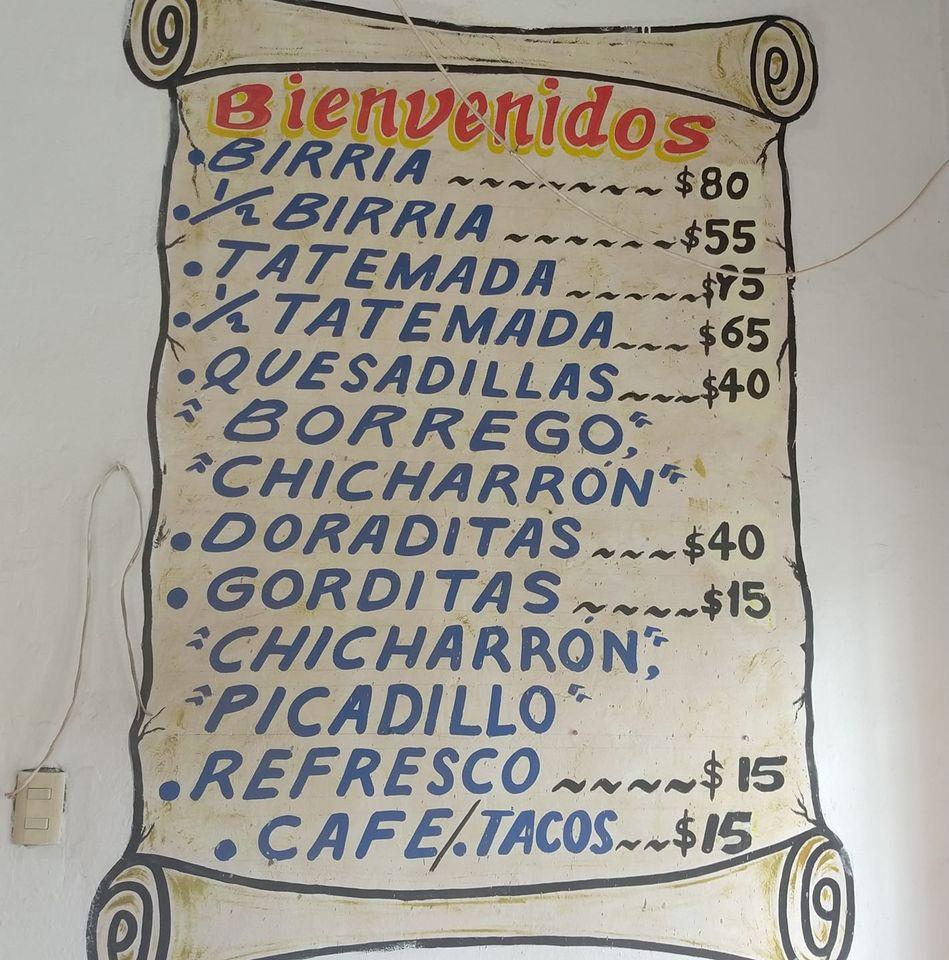 Bienvenidos
• BIRRIA ~~~~~~~ $80
• 1/2 BIRRIA ~~~~~~ $55
• TATEMADA ~~~~~ $75
• 1/2 TATEMADA ~~~ $65
• QUESADILLAS ~~~~ $40
"BORREGO",
"CHICHARRÓN"
• DORADITAS ~~~ $40
• GORDITAS ~~~~ $15
"CHICHARRÓN",
"PICADILLO"
• REFRESCO ~~~~~ $15
• CAFE/.TACOS ~~ $15